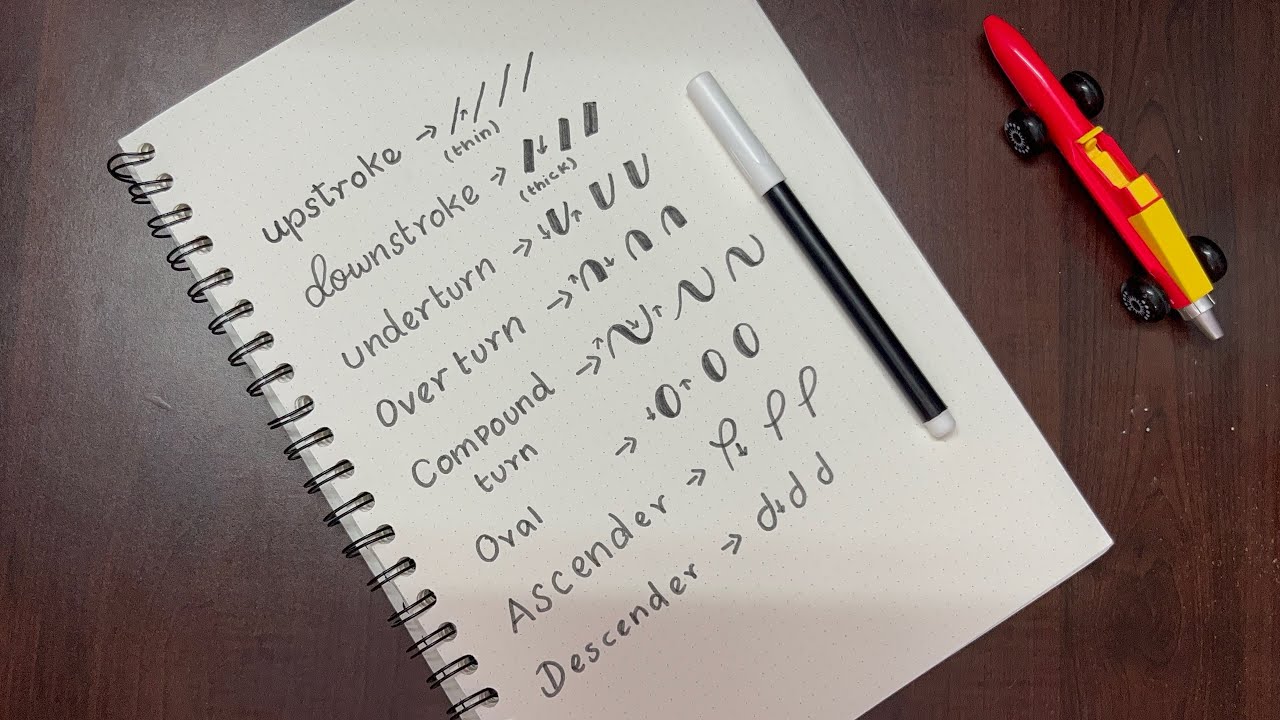 upstroke →
(thin)
downstroke →
(thick)
underturn →
Over turn →
Compound →
turn
Oval →
Ascender →
Descender →